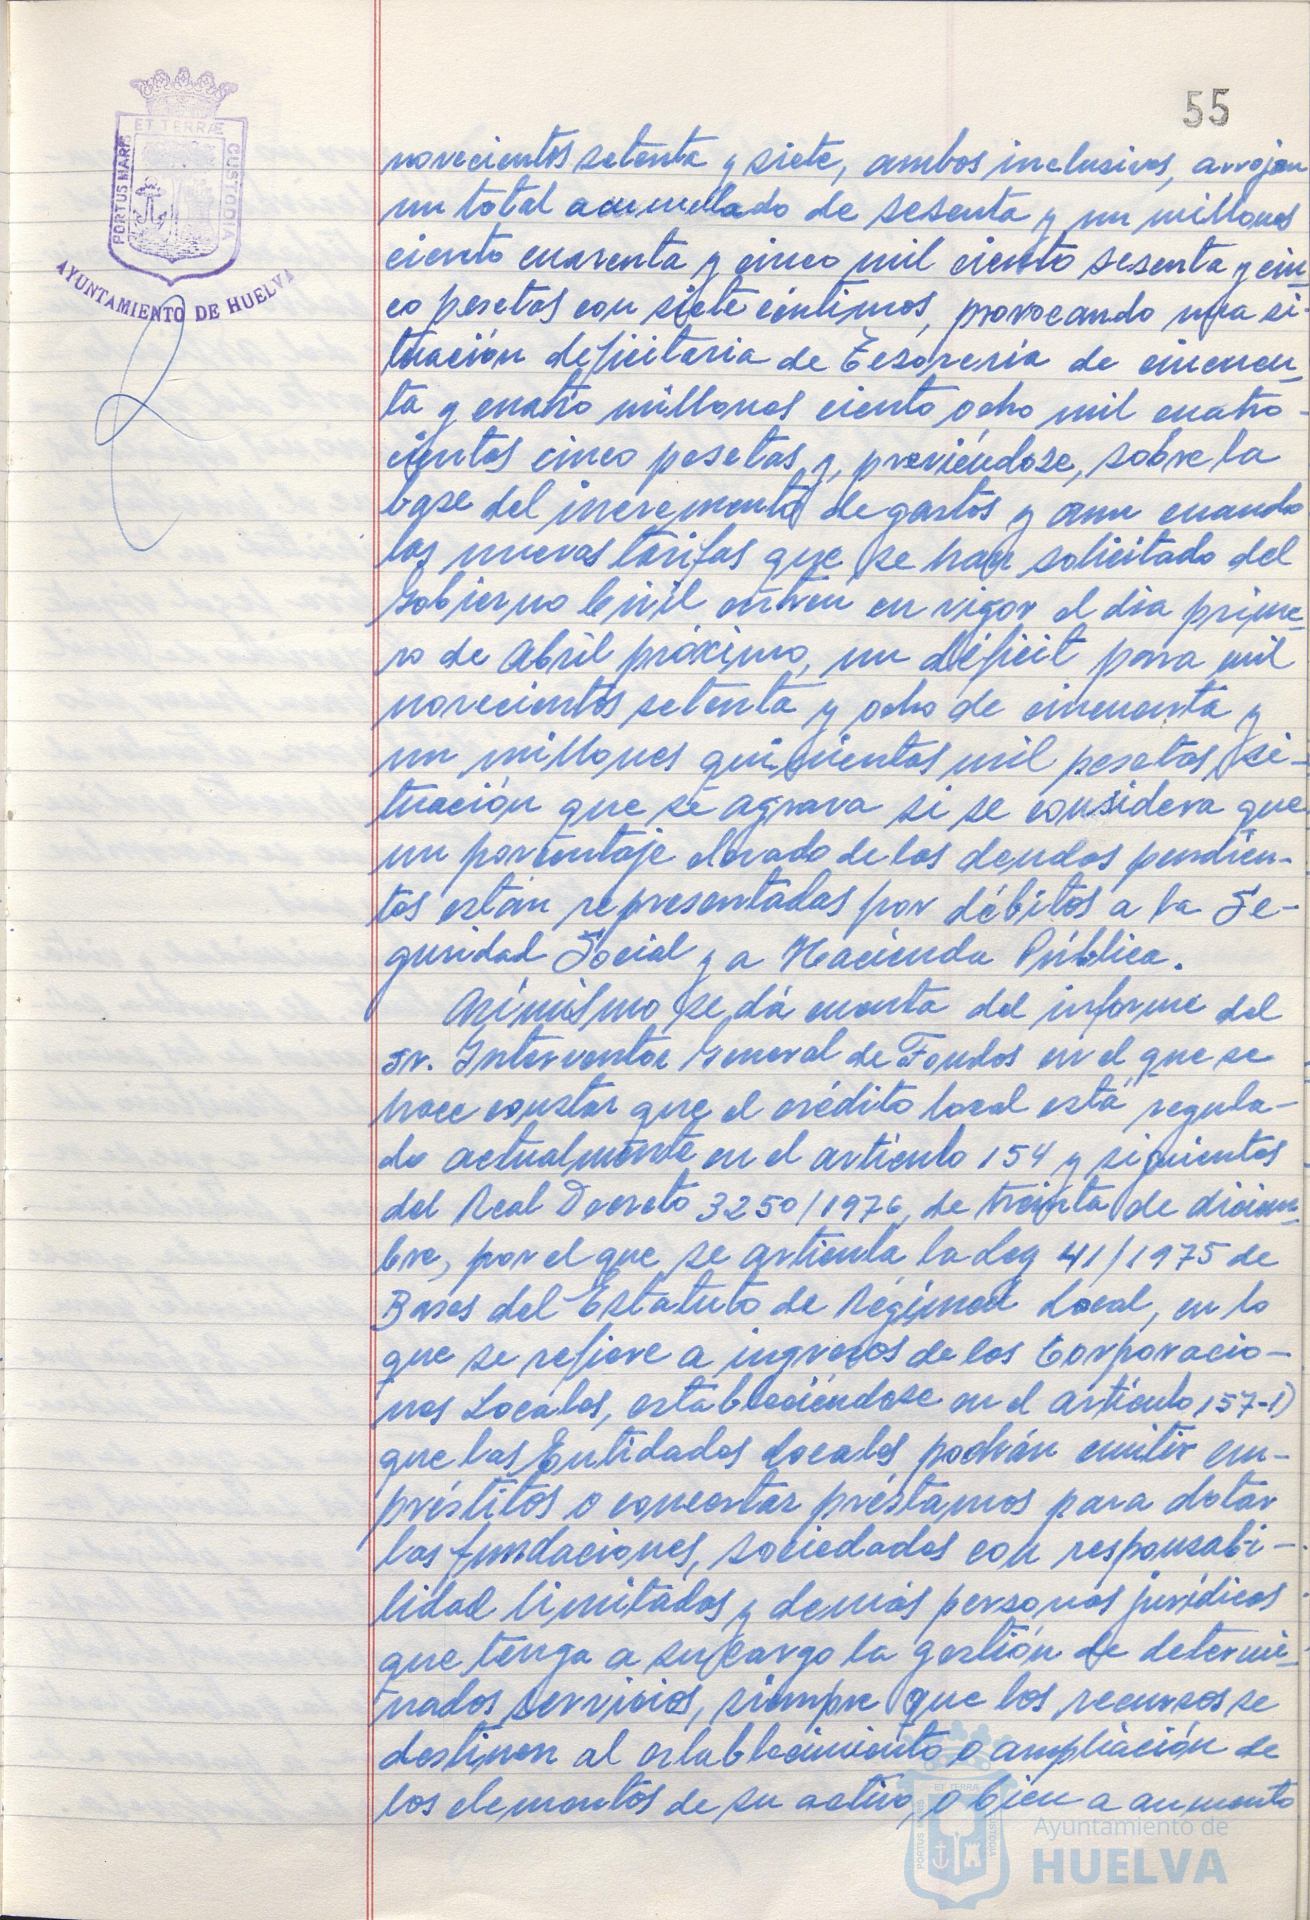 55
ET TERRÆ
PORTUS MARIS
CUSTODIA
AYUNTAMIENTO DE HUELVA
novecientos setenta y siete, ambos inclusives, arrojan
un total acumulado de sesenta y un millones
ciento cuarenta y cinco mil ciento sesenta y cin-
co pesetas con siete céntimos, provocando una si-
tuación deficitaria de Tesorería de cincuen-
ta y cuatro millones ciento ocho mil cuatro-
cientas cinco pesetas y, previéndose, sobre la
base del incremento de gastos y aun cuando
las nuevas tarifas que se han solicitado del
Gobierno Civil entren en vigor el dia prime-
ro de Abril próximo, un déficit para mil
novecientos setenta y ocho de cincuenta y
un millones quinientas mil pesetas, si-
tuación que se agrava si se considera que
un porcentaje elevado de las deudas pendien-
tes están representadas por débitos a la Se-
guridad Social y a Hacienda Pública.
Asimismo se dá cuenta del informe del
Sr. Interventor General de Fondos en el que se
hace constar que el crédito local está regula-
do actualmente en el artículo 154 y siguientes
del Real Decreto 3250/1976, de treinta de diciem-
bre, por el que se articula la Ley 41/1975 de
Bases del Estatuto de Régimen Local, en lo
que se refiere a ingresos de las Corporacio-
nes Locales, estableciéndose en el artículo 157-1)
que las Entidades Locales podrán emitir em-
préstitos o concertar préstamos para dotar
las fundaciones, sociedades con responsabi-
lidad limitadas y demás personas jurídicas
que tenga a su cargo la gestión de determi-
nados servicios, siempre que los recursos se
destinen al establecimiento o ampliación de
los elementos de su activo, o bien a aumento
ET TERRA
PORTUS MARIS
CUSTODIA
Ayuntamiento de
HUELVA